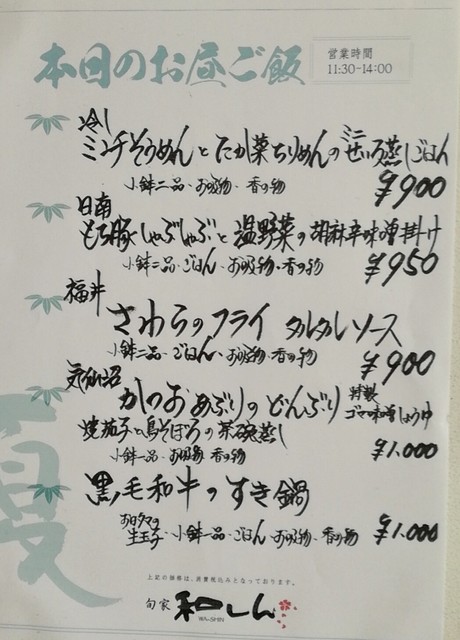 本日のお昼ご飯
営業時間
11:30-14:00
冷し
ミンチそうめんとたか菜ちりめんのミニせいろ蒸しごはん
小鉢二品・お吸物・香の物
¥900
日南
もち豚しゃぶしゃぶと温野菜の胡麻辛味噌掛け
小鉢二品・ごはん・お吸物・香の物
¥950
福井
さわらのフライ タルタルソース
小鉢二品・ごはん・お吸物・香の物
¥900
気仙沼
かつおあぶりのどんぶり 特製ゴマ味噌しょうゆ
焼茄子と鳥そぼろの茶碗蒸し
¥1.000
小鉢一品・お吸物・香の物
黒毛和牛のすき鍋
生玉子・小鉢一品・ごはん・お吸物・香の物
¥1.000
夏
上記の価格は、消費税込みとなっております。
旬家 和しん
WA-SHIN